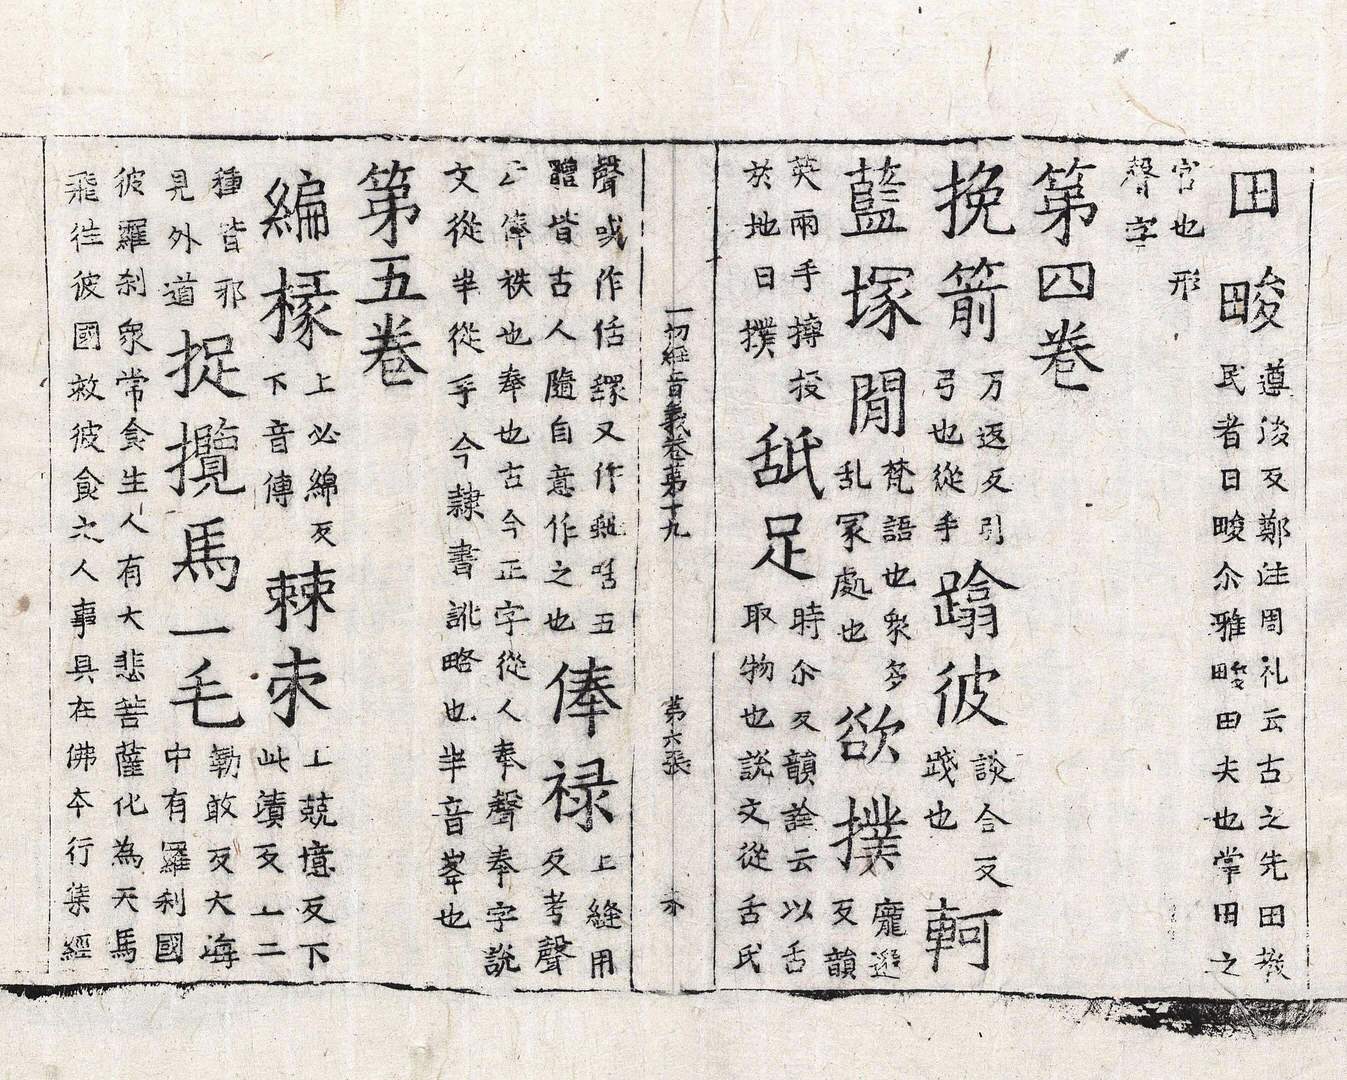 田畯 遵後反鄭注周礼云古之先田教
民者曰畯尒雅畯田夫也掌田之
官也形
聲字
第四卷
挽箭 万返反引
弓也從手 蹹彼 談合反
踐也 軻
藍塚間 梵語也衆多
乱冢處也 欲撲 龐邈
反韻
英兩手摶投
於地曰撲 舐足 時尒反韻詮云以舌
取物也說文從舌氏
一切經音義卷第十九 第六張
聲或作 又作 五
體皆古人隨自意作之也 俸禄 上縫用
反考聲
云俸袟也奉也古今正字從人奉聲奉字說
文從半從手今隸書訛略也半音峯也
第五卷
編椽 上必綿反
下音傳 棘朿 上兢憶反下
此漬反上二
種皆邪
見外道 捉攬馬一毛 勒敢反大海
中有羅刹國
彼羅刹衆常食生人有大悲菩薩化為天馬
飛往彼國救彼食之人事具在佛本行集經